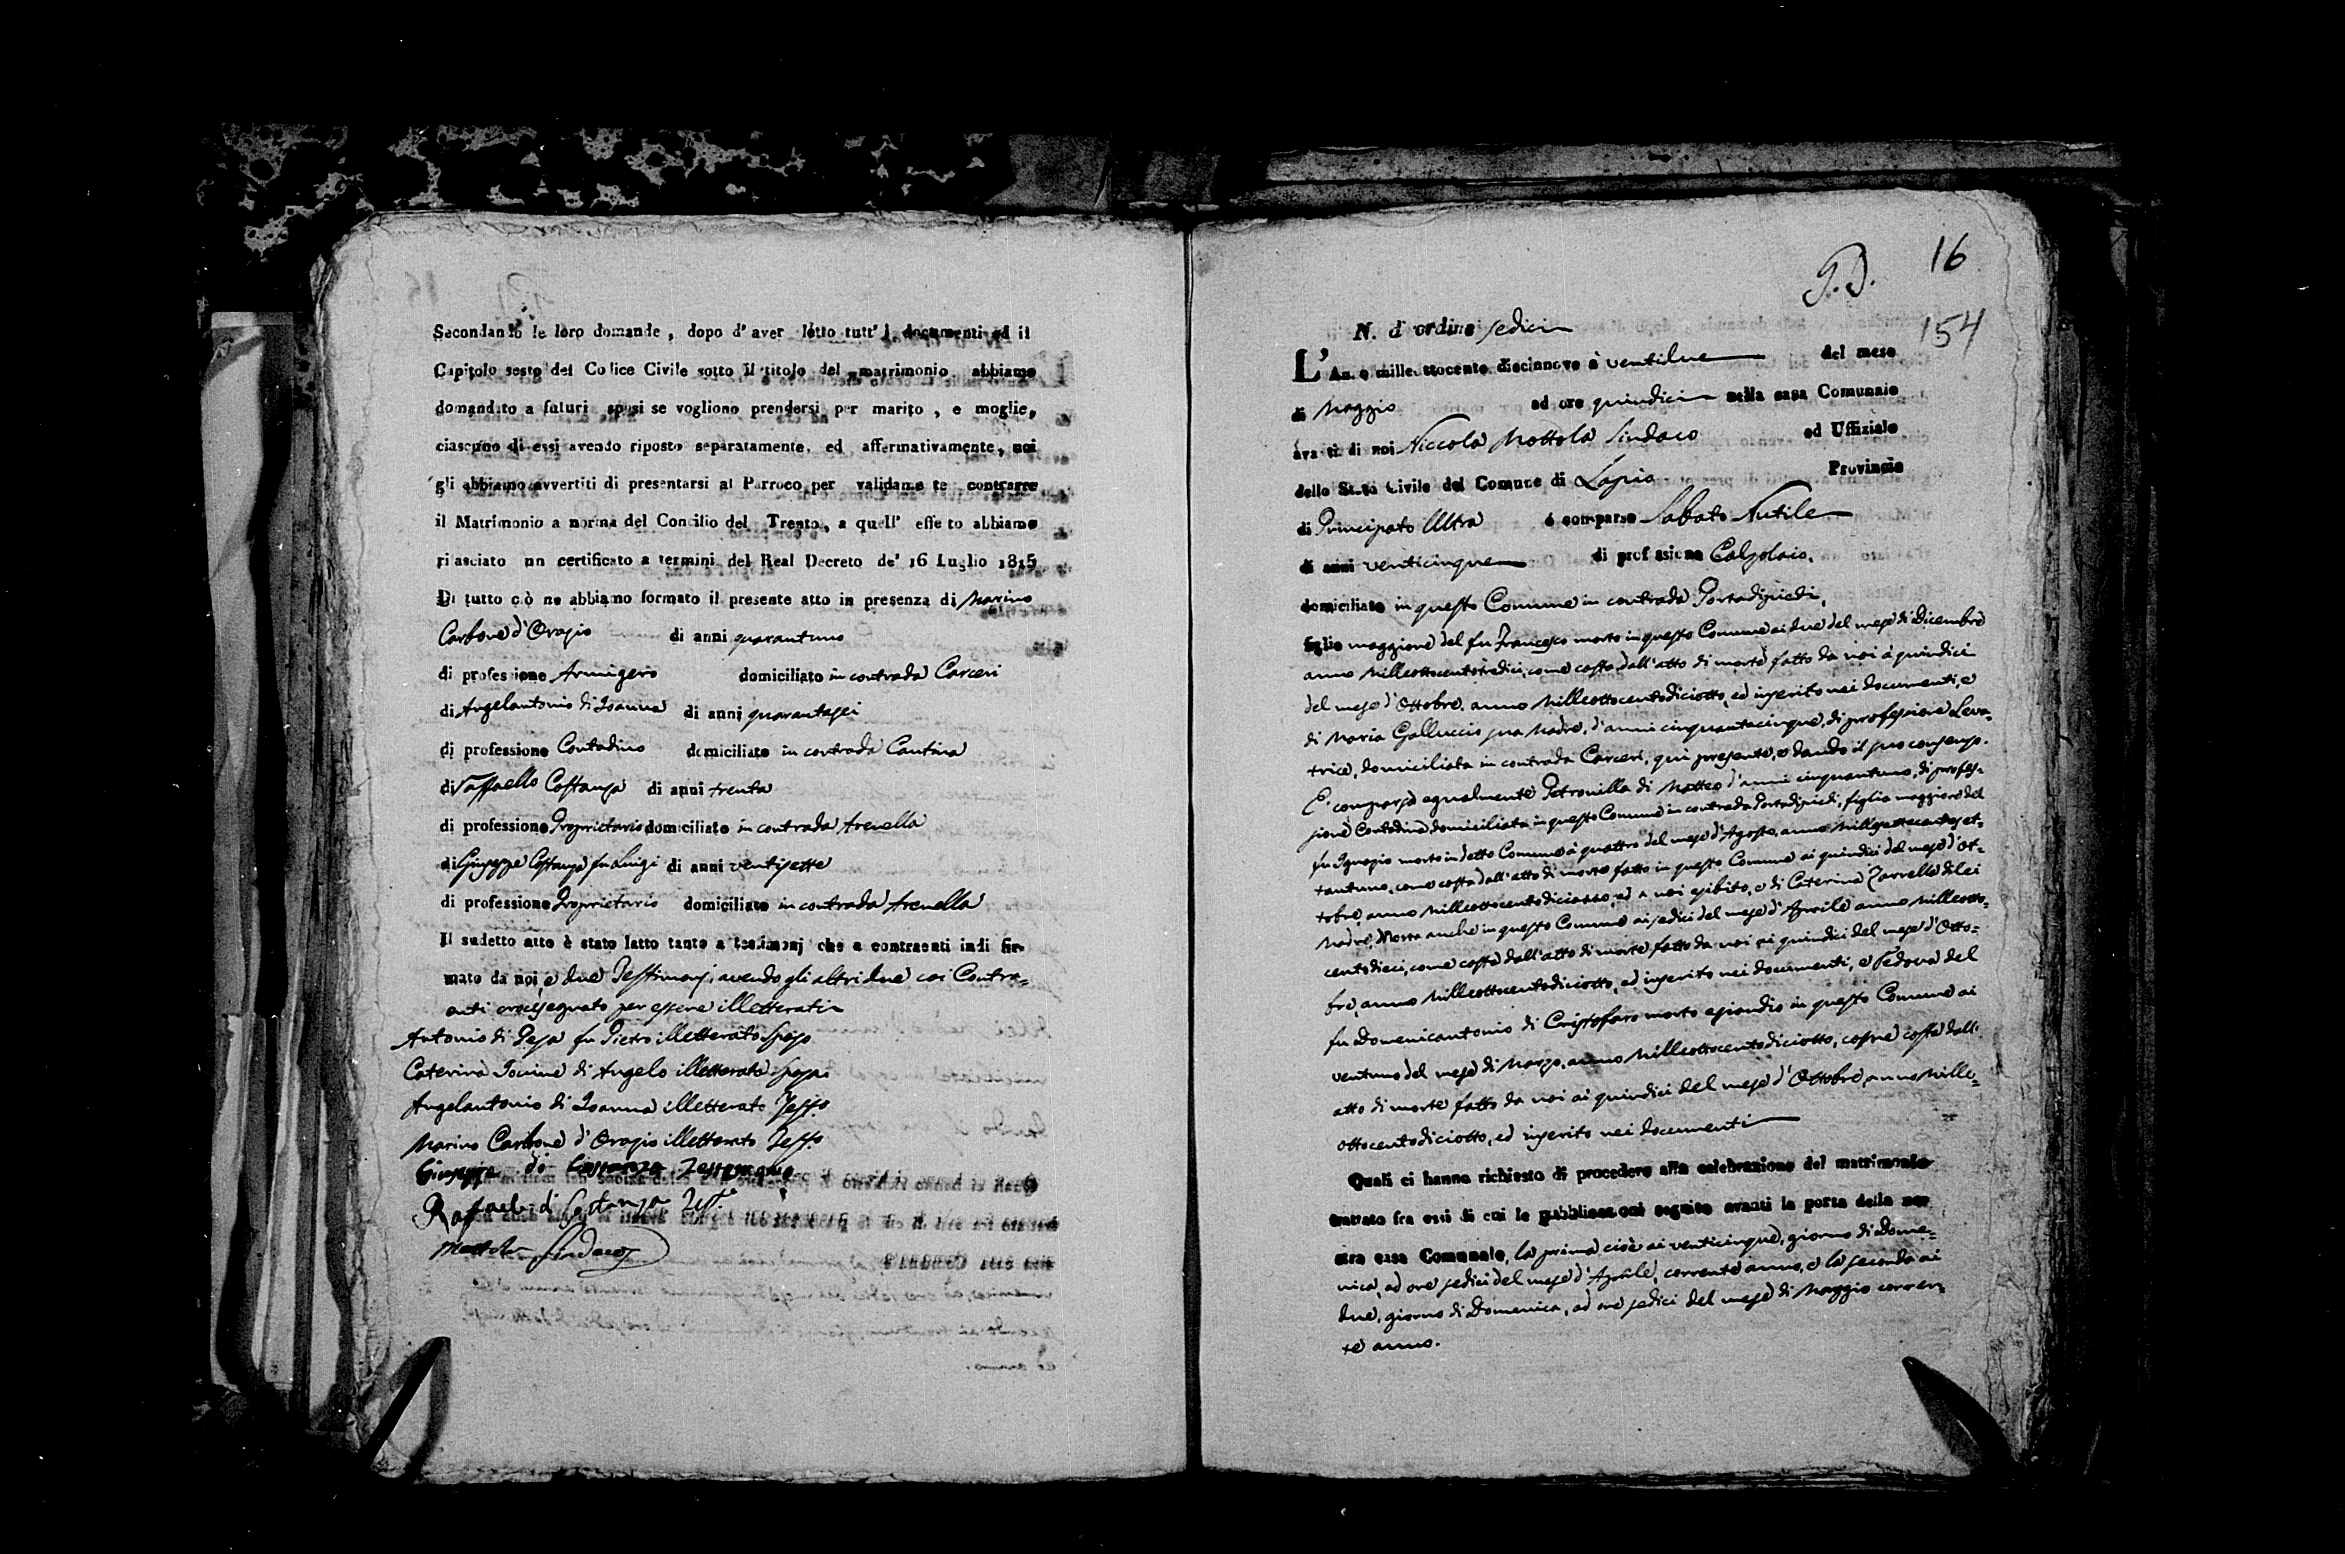 Secondando le loro domande, dopo d' aver letto tutt' i documenti ed il
Capitolo sesto del Codice Civile sotto il titolo del matrimonio abbiamo
domandato a futuri sposi se vogliono prendersi per marito, e moglie,
ciascuno di essi avendo riposto separatamente, ed affermativamente, noi
gli abbiamo avvertiti di presentarsi al Parroco per validamente contrarre
il Matrimonio a norma del Concilio del Trento, a quell' effetto abbiamo
rilasciato un certificato a termini del Real Decreto de' 16 Luglio 1815
Di tutto ciò ne abbiamo formato il presente atto in presenza di Marino
Carbone d'Orazio di anni quarantuno
di professione Armigero domiciliato in contrada Carceri
di Angelantonio di Joanna di anni quarantasei
di professione Contadino domiciliato in contrada Cantina
di Raffaello Costanza di anni trenta
di professione Proprietario domiciliato in contrada Arenella
di Giuseppe Costanza fu Luigi di anni ventisette
di professione Proprietario domiciliato in contrada Arenella
Il sudetto atto è stato latto tanto a testimonj che a contraenti indi fir-
mato da noi, e due Testimonj, avendo gli altri due coi Contra-
enti crocesegnato per essere illetterati
Antonio di Peja fu Pietro illetterato Sposo
Caterina Jovine di Angelo illetterata Sposa
Angelantonio di Joanna illetterato Testo.
Marino Carbone d'Orazio illetterato Testo.
Giuseppe di Costanza Testimonio
Rafaele di Costanza Test.e
Mottola Sindaco
P.D. 16
154
N. d' ordine sedici
L' Anno milleottocento diecinnove à ventidue del mese
di Maggio ad ore quindici nella casa Comunale
avanti di noi Niccola Mottola Sindaco ed Uffiziale
dello Stato Civile del Comune di Lapio Provincia
di Principato Ultra è comparso Sabato Nutile
di anni venticinque di professione Calzolaio,
domiciliato in questo Comune in contrada Portadipiedi,
figlio maggiore del fu Francesco morto in questo Comune ai due del mese di Dicembre
anno milleottocentotredici, come costa dall'atto di morte fatto da noi à quindici
del mese d'Ottobre anno milleottocentodiciotto, ed inserito nei documenti, e
di Maria Galluccio sua Madre, d'anni cinquantacinque, di professione Leva-
trice, domiciliata in contrada Carceri, qui presente, e dando il suo consenso.
E' comparsa egualmente Petronilla di Matteo d'anni cinquantuno, di profes-
sione Contadina domiciliata in questo Comune in contrada Portadipiedi, figlia maggiore del
fu Ignazio morto in detto Comune à quattro del mese d'Agosto, anno millesettecentoset-
tantuno, come costa dall'atto di morte fatto in questo Comune ai quindici del mese d'Ot-
tobre anno milleottocentodiciotto, ed a noi esibito, e di Caterina Zarrella di lei
Madre, Morta anche in questo Comune ai sedici del mese d'Aprile anno milleotto-
centodieci, come costa dall'atto di morte fatto da noi ai quindici del mese d'Otto-
bre anno milleottocentodiciotto, ed inserito nei documenti, e Vedova del
fu Domenicantonio di Cristofaro morto eziandio in questo Comune ai
ventuno del mese di Marzo, anno milleottocentodiciotto, come costa dall'
atto di morte fatto da noi ai quindici del mese d'Ottobre anno mille-
ottocentodiciotto, ed inserito nei documenti
Quali ci hanno richiesto di procedere alla celebrazione del matrimonio
trattato fra essi di cui le pubblicazioni seguite avanti la porta della nos-
stra casa Comunale, la prima cioè ai venticinque, giorno di Dome-
nica, ad ore sedici del mese d'Aprile, corrente anno, e la seconda ai
due, giorno di Domenica, ad ore sedici del mese di Maggio corren-
te anno.